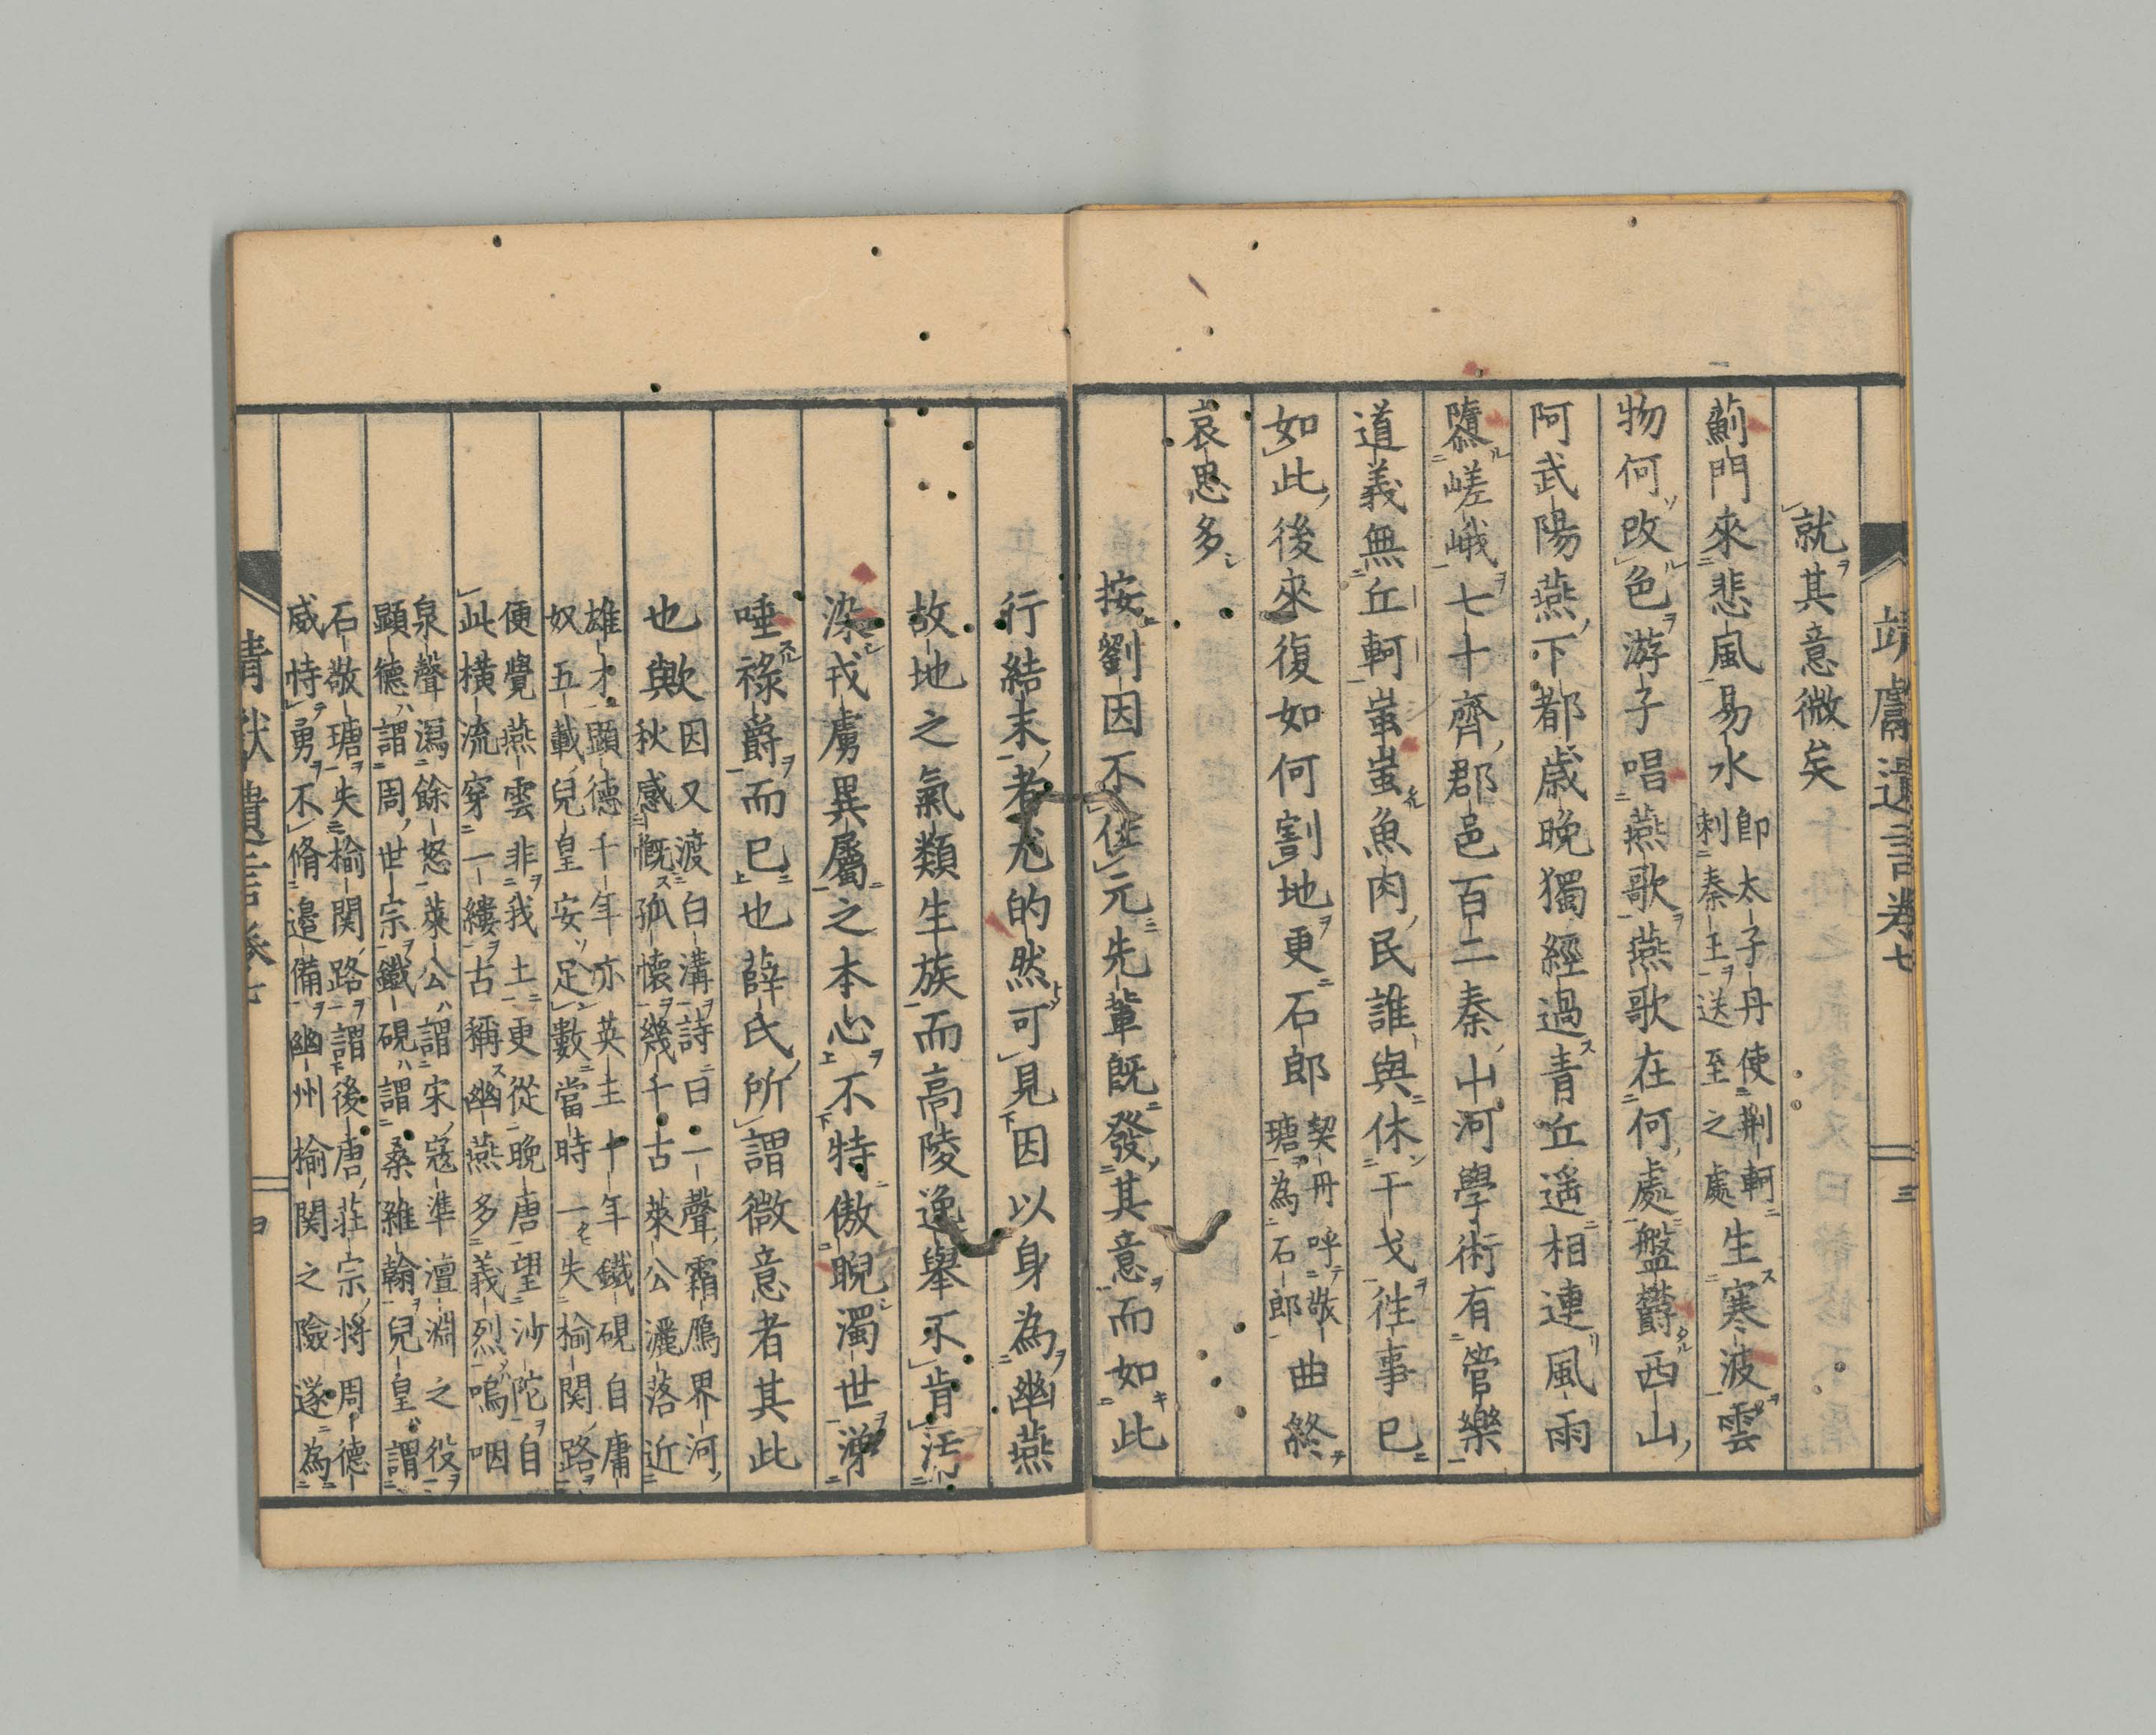 靖獻遺言卷七 三
就其意微矣
薊門來悲風易水
即太子丹使荊軻
刺秦王送至之處
生寒波雲
物何改色游子唱燕歌燕歌在何處盤鬱西山
阿武陽燕下都歳晩獨經過青丘遥相連風雨
隳嵯峨七十齊郡邑百二秦山河學術有管樂
道義無丘軻蚩蚩魚肉民誰與休干戈往事已
如此後來復如何割地更石郎
契丹呼敬
瑭為石郎
曲終
哀思多
按劉因不仕元先輩既發其意而如此
行結末者尤的然可見因以身為幽燕
故地之氣類生族而高陵逸舉不肯汚
染戎虜異屬之本心不特傲睨濁世涕
唾祿爵而已也薛氏所謂微意者其此
也歟
因又渡白溝詩曰一聲霜鴈界河
秋感慨孤懷幾千古萊公灑落近
雄才顯德千年亦英主十年鐵硯自庸
奴五載兒皇安足數當時一失榆関路
便覺燕雲非我土更從晩唐望沙陀自
此橫流穿一縷古稱幽燕多義烈嗚咽
泉聲瀉餘怒萊公謂宋寇準澶淵之役
顕德謂周世宗鐵硯謂桑維翰兒皇謂
石敬瑭失榆関路謂後唐莊宗将周德
威恃勇不脩邉備幽州榆関之險遂為
靖獻遺言卷七 四